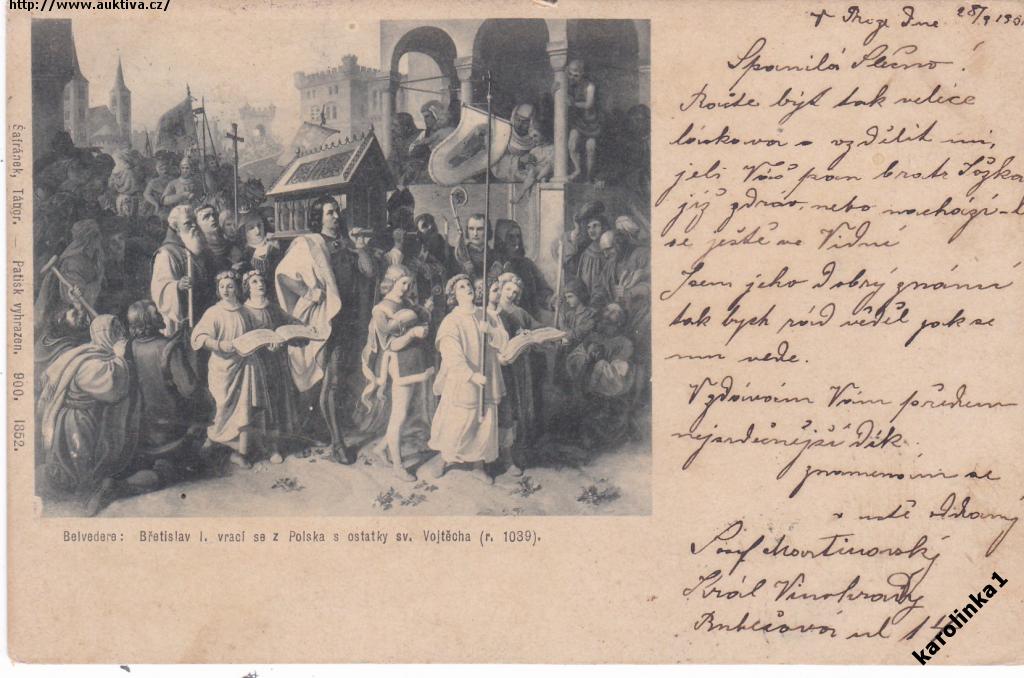 http://www.auktiva.cz/
Šafránek, Tábor. — Patisk vyhrazen. 900. 1852.
Belvedere: Břetislav I. vrací se z Polska s ostatky sv. Vojtěcha (r. 1039).
v Praze dne 28/9 1901
Spanilá Slečno!
Račte být tak velice
láskavá a vzdělit mi,
jeli Váš pan bratr
již zdráv, nebo nachází-li
se ještě ve Vídni
Jsem jeho dobrý známí
tak bych rád věděl jak se
mu vede.
Vzdávám Vám předem
nejsrdečnější dík.
znamenám se
v úctě oddaný
Josef Martinovský
Král Vinohrady
ul 15
karolinka1